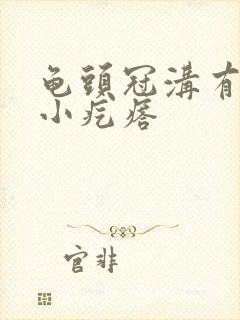 龟頭冠溝有
小疙瘩
官非